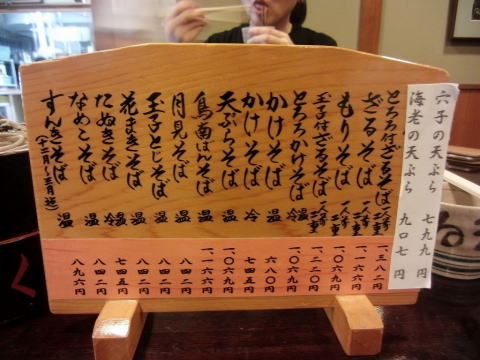 穴子の天ぷら 七九九円
海老の天ぷら 九〇七円
とろろ付ざるそば 一人前二重 一、三八二円
ざるそば 一人前二重 一、一六六円
もりそば 一人前二重 一、〇六九円
玉子付ざるそば 一人前二重 一、二二〇円
とろろかけそば 冷温 一、〇六九円
かけそば 温 六八〇円
かけそば 冷 七四五円
天ぷらそば 温 一、〇六九円
鳥南ばんそば 温 一、一六六円
月見そば 温 八四二円
玉子とじそば 温 八四二円
花まきそば 温 八四二円
たぬきそば 冷温 七四五円
なめこそば 温 八四二円
すんきそば(十二月~三月迄) 温 八九六円
く